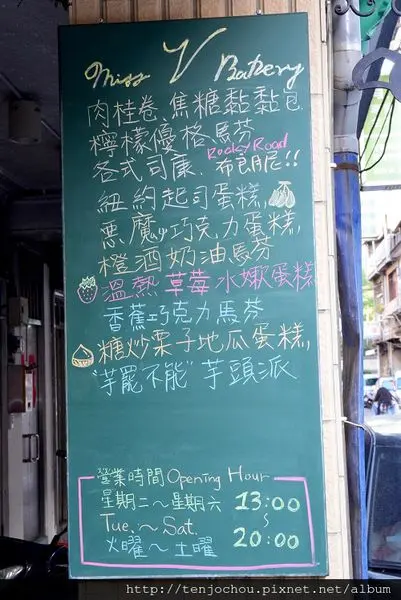 Miss V Bakery
肉桂卷、焦糖黏黏包
檸檬優格馬芬
Rocky Road
各式司康、布朗尼!!
紐約起司蛋糕,
惡魔巧克力蛋糕,
橙酒奶油馬芬
溫熱草莓冰嫩蛋糕
香蕉巧克力馬芬
糖炒栗子地瓜蛋糕,
"芋罷不能"芋頭派
營業時間 Opening Hour
星期二~星期六 13:00
Tue.~Sat. ~
火曜~土曜 20:00
http://tenjochou.pixnet.net/album